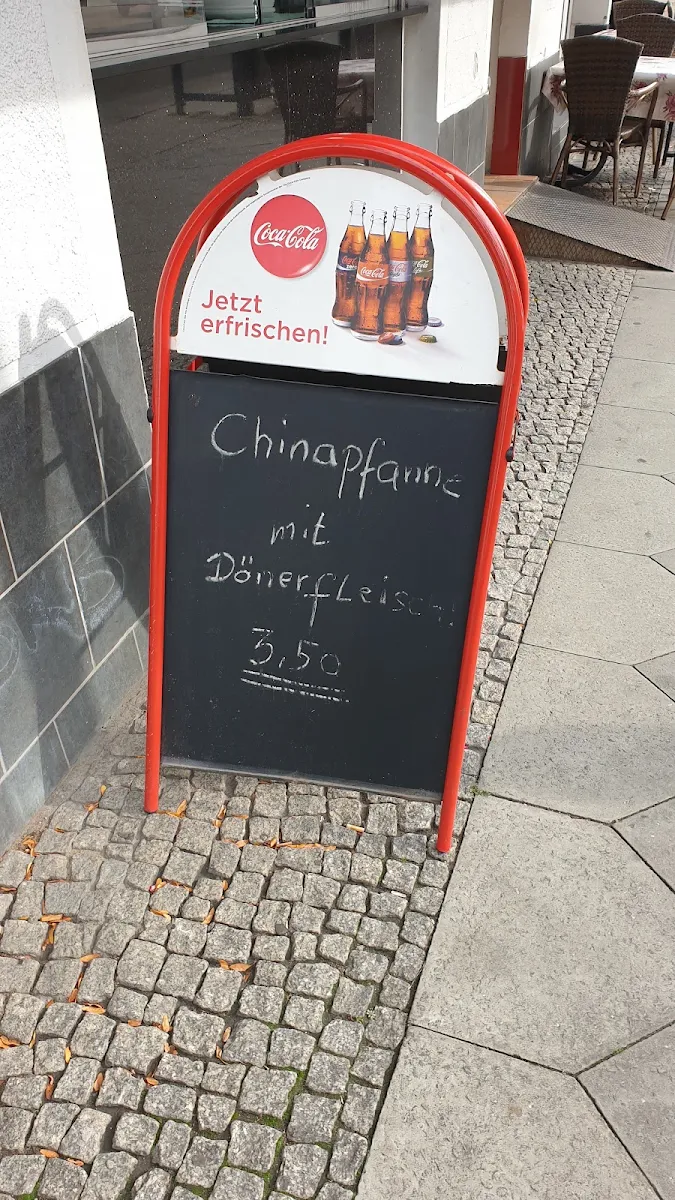 Coca-Cola
Jetzt
erfrischen!
Chinapfanne
mit
Dönerfleisch!
3,50